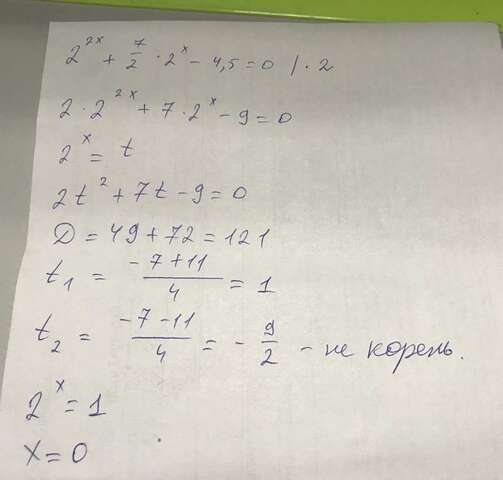 2^{2x} + \frac{7}{2} \cdot 2^x - 4,5 = 0 / \cdot 2
2 \cdot 2^{2x} + 7 \cdot 2^x - 9 = 0
2^x = t
2t^2 + 7t - 9 = 0
D = 49 + 72 = 121
t_1 = \frac{-7+11}{4} = 1
t_2 = \frac{-7-11}{4} = -\frac{9}{2} - не корень.
2^x = 1
x = 0